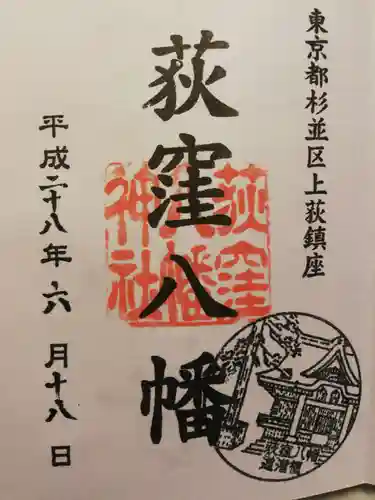 東京都杉並区上荻鎮座
荻窪八幡
荻窪八幡神社
平成二十八年六月十八日